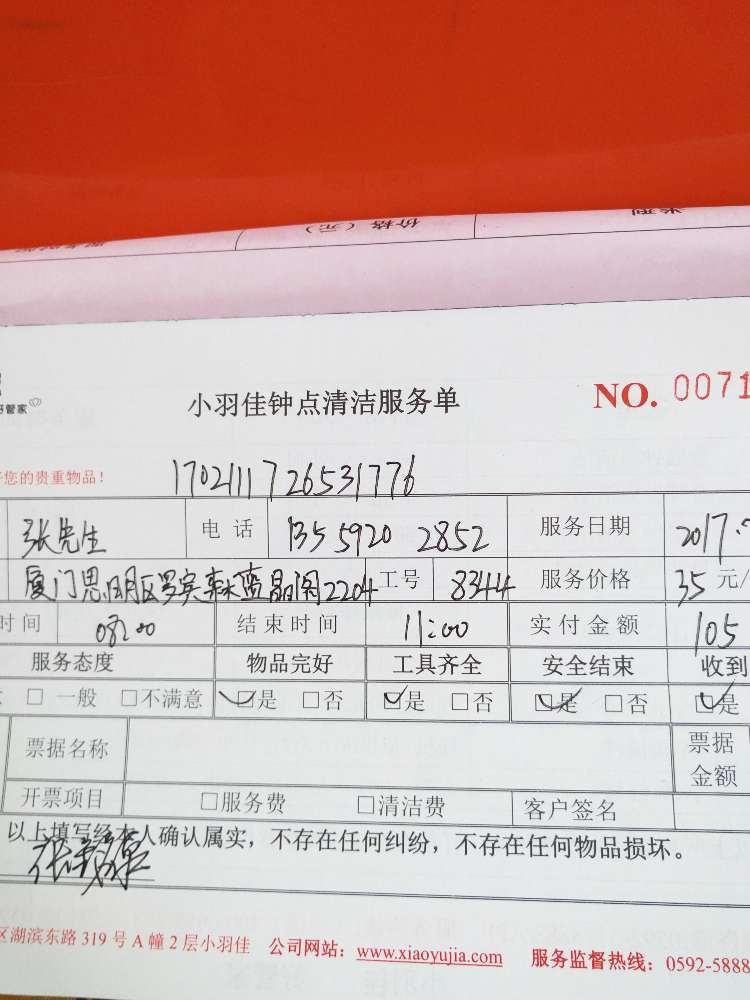 价格（元）
好管家
小羽佳钟点清洁服务单 NO. 0071
好您的贵重物品！ 17021117 26531776
张先生 电 话 135 5920 2852 服务日期 2017.
厦门思明区罗宾森蓝晶阁2204 工号 8344 服务价格 35 元/
时 间 08:00 结 束 时 间 11:00 实 付 金 额 105
服务态度 物品完好 工具齐全 安全结束 收到
□ 一般 □不满意 ☑是 □否 ☑是 □否 ☑是 □否 ☑是
票据名称 票据
金额
开票项目 □服务费 □清洁费 客户签名
以上填写经本人确认属实，不存在任何纠纷，不存在任何物品损坏。
区湖滨东路 319 号 A 幢 2 层小羽佳 公司网站：www.xiaoyujia.com 服务监督热线：0592-5888